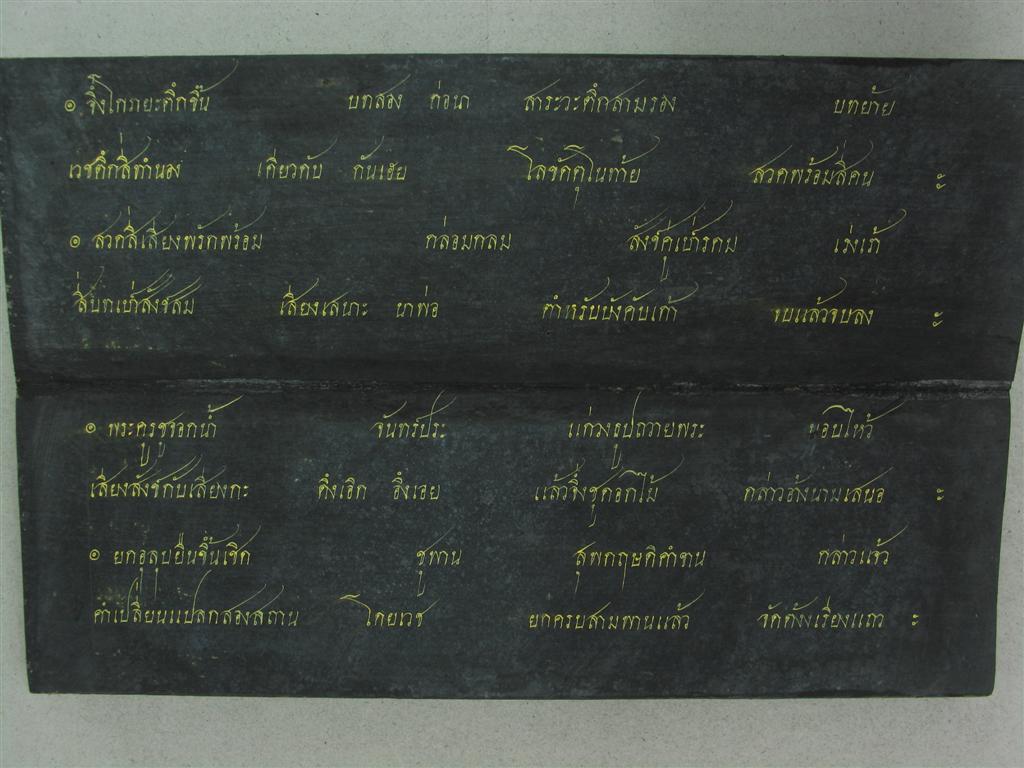 ๏ จึ่งโกรายะศึกขึ้น บทสอง ก่อนา สาระวะศึกสามรอง บทย้าย
เวชศึกสี่ทำนอง เดี่ยวดับ กันเฮย โลขัดคุโนท้าย สวดพร้อมสี่คน ๚
๏ สวดสี่เสียงพรักพร้อม กล่อมกลม สังข์คู่เป่ารดม เร่งเร้า
สี่บทเป่าสังขสม เสียงเสนาะ นาพ่อ ตำหรับบังคับเค้า จบแล้วจบลง ๚
๏ พระครูชูจอกน้ำ จันทร์ประ แกว่งธูปถวายพระ นอบไหว้
เสียงสังข์กับเสียงกะ ดึงเอิก อึงเอย แล้วจึ่งชูดอกไม้ กล่าวอ้างนามเสนอ ะ
๏ ยกอุลุบยืนขึ้นเชิด ชูพาน กล่าวแจ้ว
คำเปลี่ยนแปลกสองสถาน โดยเวช ยกครบสามพานแล้ว จัดตั้งเรียงแถว ะ